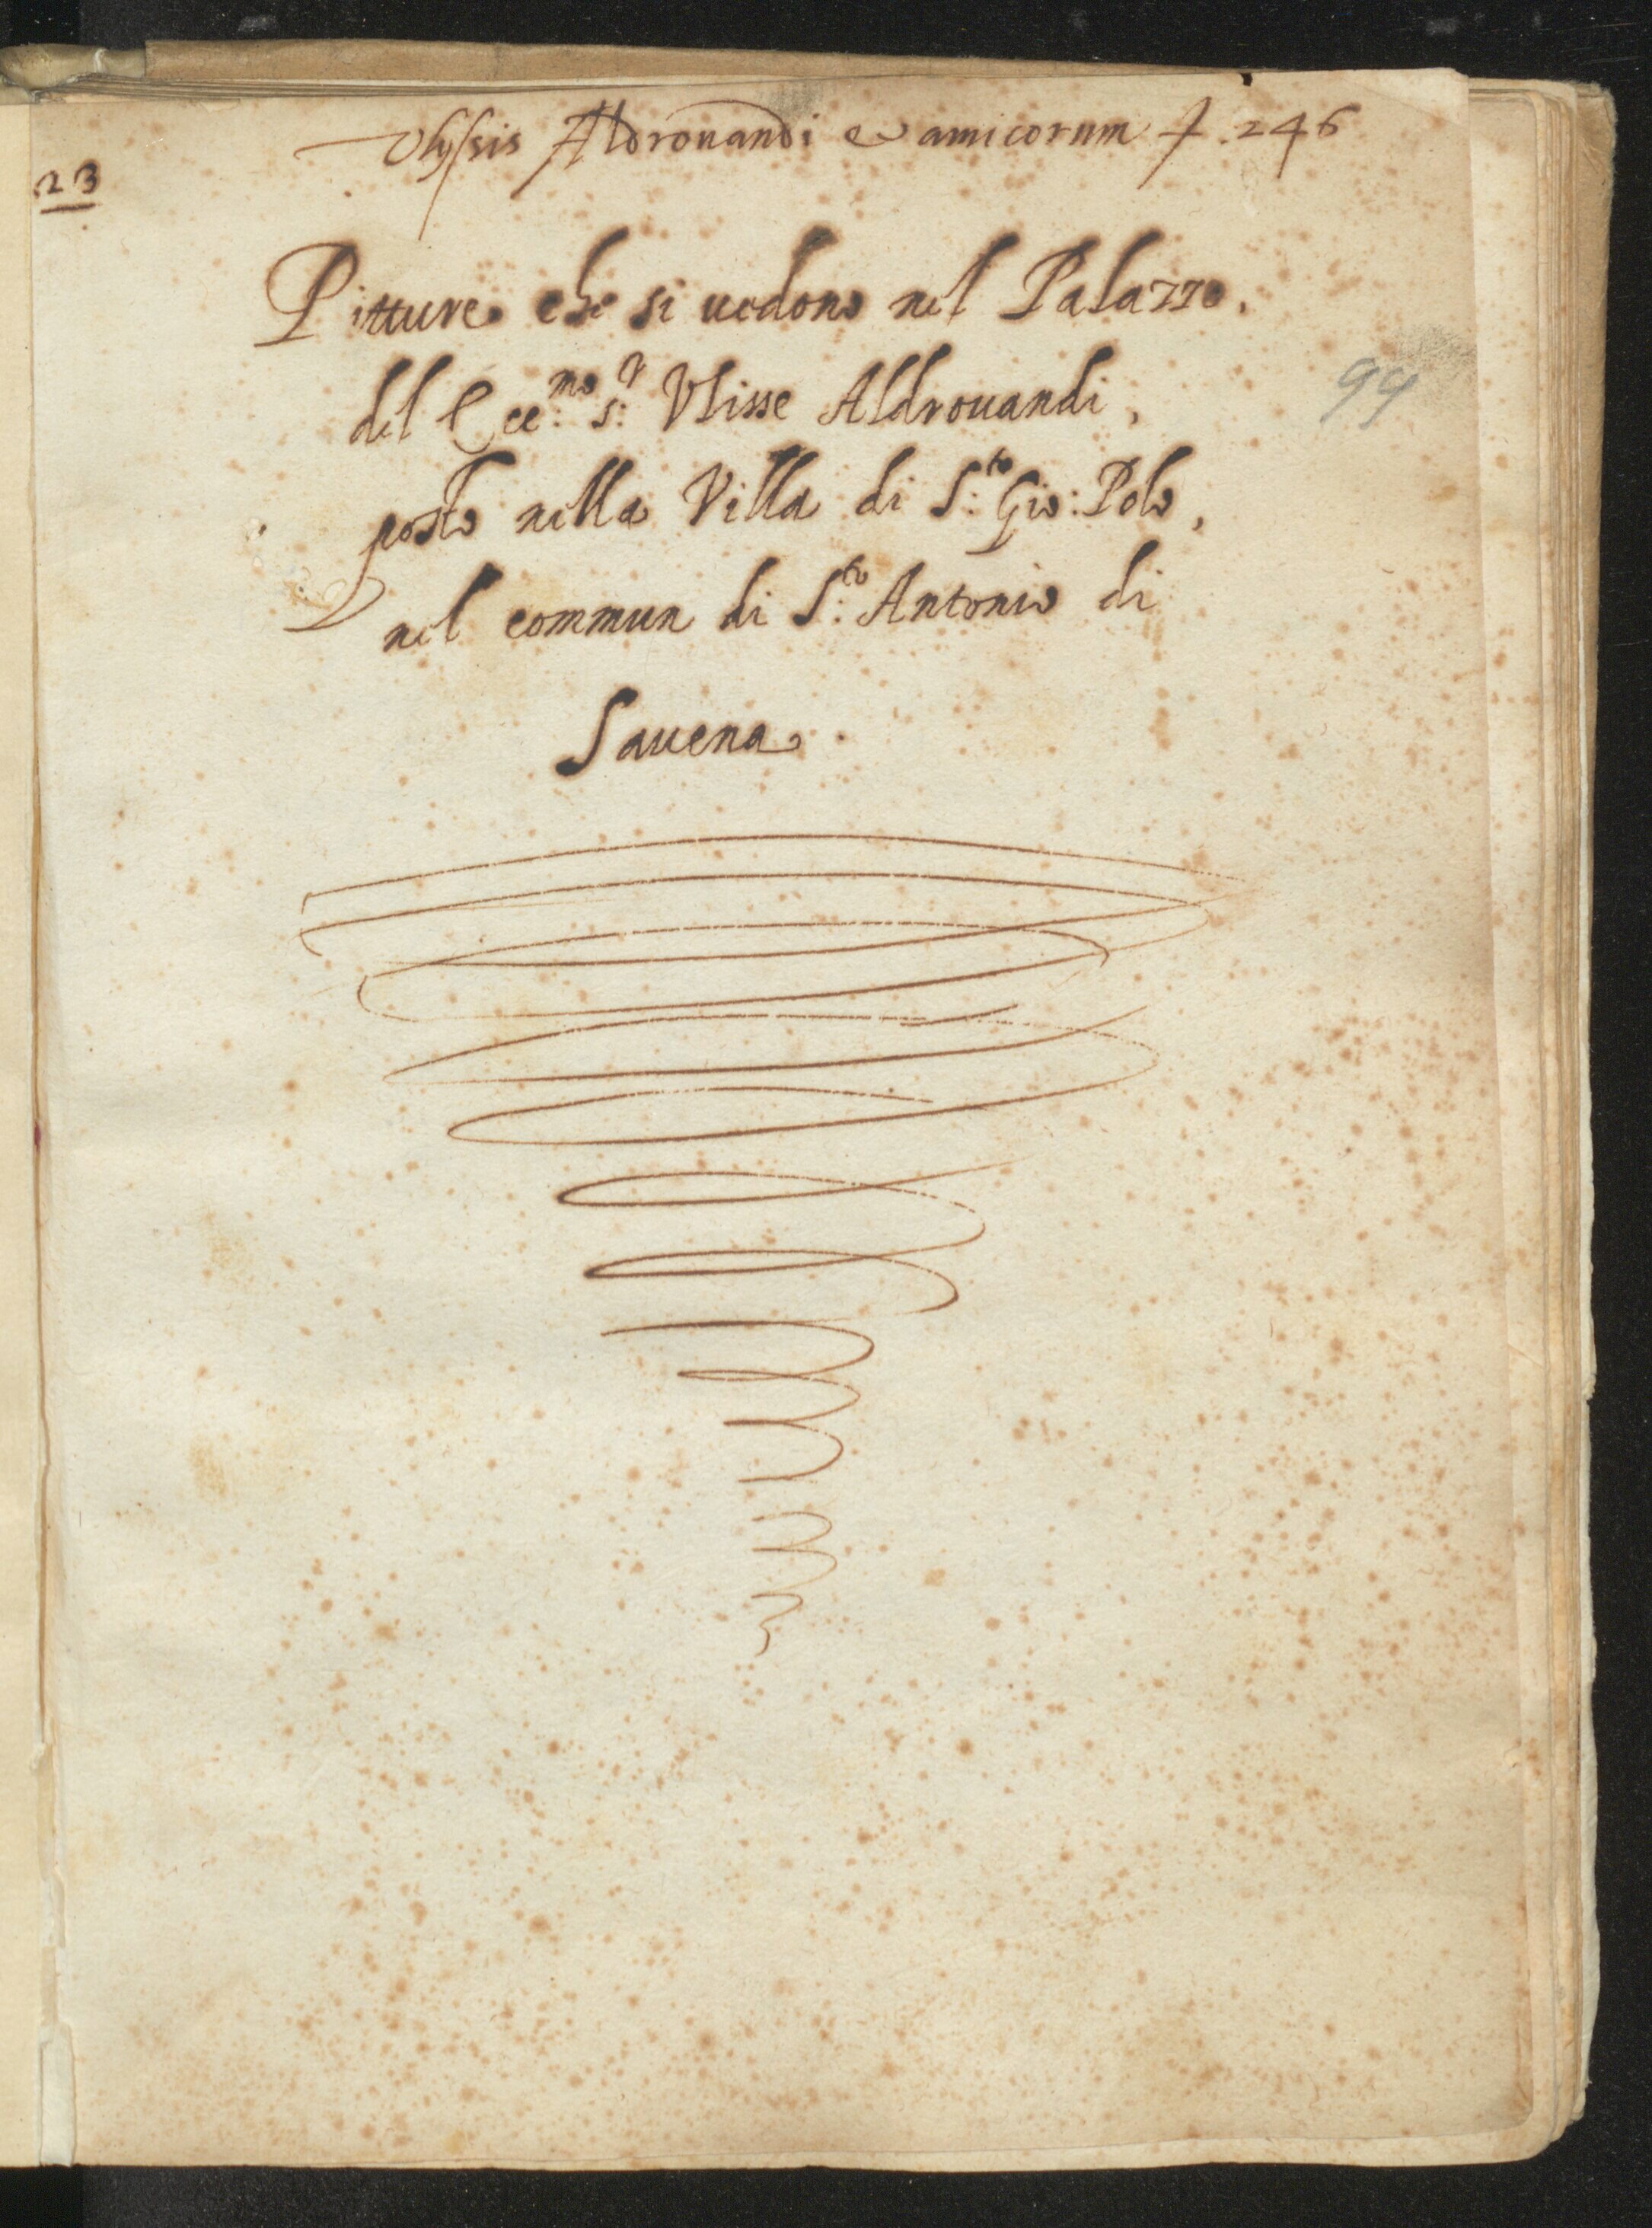 Vlyssis Aldrouandi et amicorum f. 246
23
Pitture che si uedono nel Palazzo,
del Ecc:mo s:r Vlisse Aldrouandi,
posto nella Villa di S:to Gio: Polo,
nel commun di S:to Antonio di
Sauena.
99